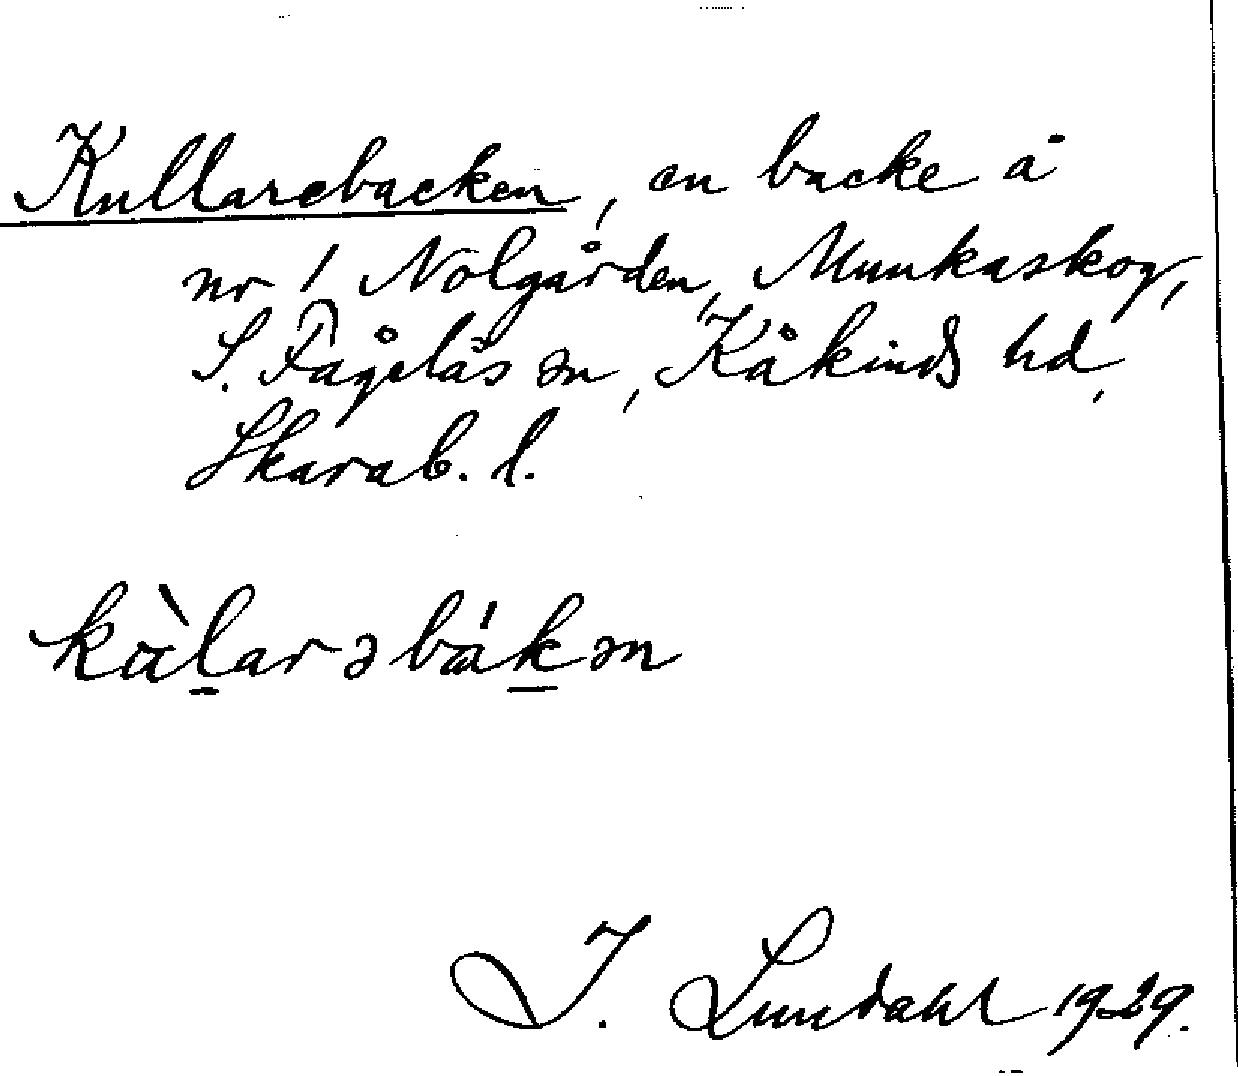 Kullarebacken, en backe å
nr 1 Nolgården, Munkaskog,
S. Fågelås sn, Kåkinds hd,
Skarab. l.
kàlarəbákən
I. Lundahl 1929.